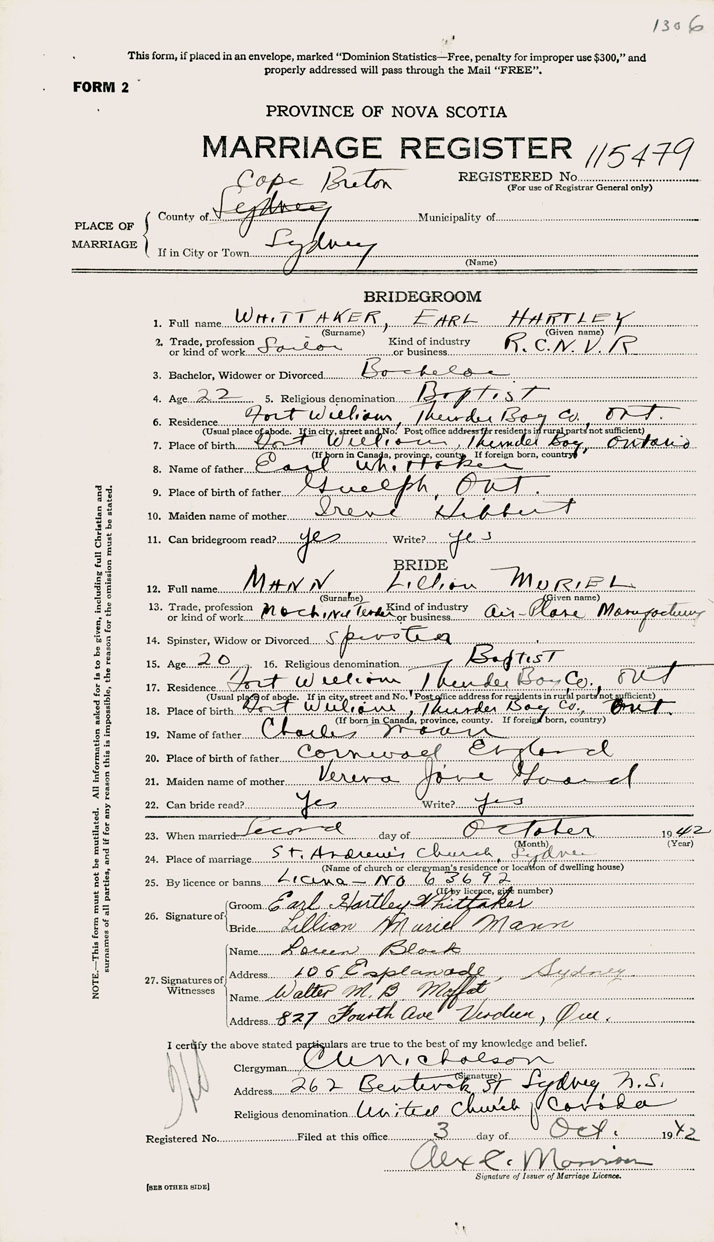 1306
This form, if placed in an envelope, marked "Dominion Statistics—Free, penalty for improper use $300," and
properly addressed will pass through the Mail "FREE".
FORM 2
PROVINCE OF NOVA SCOTIA
MARRIAGE REGISTER 115479
REGISTERED No.
(For use of Registrar General only)
Cape Breton
PLACE OF MARRIAGE
County of Sydney Municipality of
If in City or Town Sydney
(Name)
BRIDEGROOM
1. Full name WHITTAKER, EARL HARTLEY
(Surname) (Given name)
2. Trade, profession or kind of work Sailor Kind of industry or business R.C.N.V.R
3. Bachelor, Widower or Divorced Bachelor
4. Age 22 5. Religious denomination Baptist
6. Residence Fort William, Thunder Bay Co, Ont.
(Usual place of abode. If in city, street and No. Post office address for residents in rural parts not sufficient)
7. Place of birth Fort William, Thunder Bay, Ontario
(If born in Canada, province, county. If foreign born, country)
8. Name of father Earl Whittaker
9. Place of birth of father Guelph, Ont.
10. Maiden name of mother Irene Hibbert
11. Can bridegroom read? yes Write? yes
BRIDE
12. Full name MANN, Lillian MURIEL
(Surname) (Given name)
13. Trade, profession or kind of work Machine Tender Kind of industry or business Air-Plane Manufacturing
14. Spinster, Widow or Divorced Spinster
15. Age 20 16. Religious denomination Baptist
17. Residence Fort William Thunder Bay Co., Ont
(Usual place of abode. If in city, street and No. Post office address for residents in rural parts not sufficient)
18. Place of birth Fort William, Thunder Bay Co., Ont.
(If born in Canada, province, county. If foreign born, country)
19. Name of father Charles Mann
20. Place of birth of father Cornwall England
21. Maiden name of mother Jane
22. Can bride read? Yes Write? yes
23. When married Second day of October 1942
(Month) (Year)
24. Place of marriage St. Andrew's Church, Sydney
(Name of church or clergyman's residence or location of dwelling house)
25. By licence or banns No 63692
(If by licence, give number)
26. Signature of
Groom Earl Hartley Whittaker
Bride Lillian Muriel Mann
27. Signatures of Witnesses
Name Black
Address 106 Esplanade, Sydney
Name Walter M. B. Moffat
Address 827 Fourth Ave Verdun, Que.
I certify the above stated particulars are true to the best of my knowledge and belief.
Clergyman Nicholson
(Signature)
Address 262 Bentinck St Sydney N.S.
Religious denomination United Church of Canada
Registered No. Filed at this office 3 day of Oct. 1942
Alex C. Morrison
Signature of Issuer of Marriage Licence.
[SEE OTHER SIDE]
NOTE.—This form must not be mutilated. All information asked for is to be given, including full Christian and
surnames of all parties, and if for any reason this is impossible, the reason for the omission must be stated.